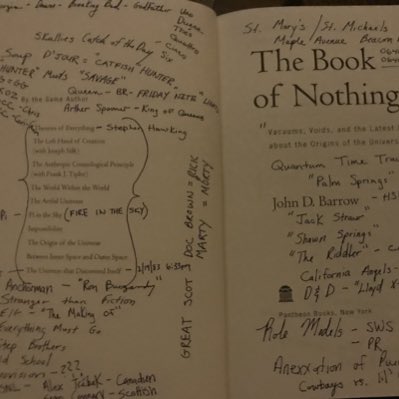 Skallies Catch of the Day
Uno
Duece
Tres
Quattro
Cinco
Six
Soup D'JOUR = CATFISH HUNTER,
HUNTER" Meets "SAVAGE"
Queen - BR- FRIDAY NITE "LIGHTS
by the Same Author
Arther Spooner - King of Queens
Theories of Everything - Stephen Hawking
The Left Hand of Creation
(with Joseph Silk)
The Anthropic Cosmological Principle
(with Frank J. Tipler)
The World Within the World
The Artful Universe
Pi in the Sky (FIRE IN THE SKY)
Impossibility
The Origin of the Universe
Between Inner Space and Outer Space
The Universe that Discovered Itself
2/19/83 6:33pm
Anchorman - "Ron Burgundy"
Stranger than Fiction
Elf - "The Making of"
Everything Must Go
Step Brothers
Old School
???
Alex Trebek - Canadian
Sean Connery - Scottish
GREAT SCOT DOC BROWN = RICK
MARTY = MORTY
St. Mary's / St. Michaels
Maple Avenue Beacon
The Book
of Nothing
"Vacuums, Voids, and the Latest
about the Origins of the Universe
Quantum Time Travel
"Palm Springs"
John D. Barrow
"Jack Straw"
"Shawn Springs"
"The Riddler"
California Angels -
D&D - "Lloyd
Pantheon Books, New York
Role Models - SWS
- PR
Cowboys vs.